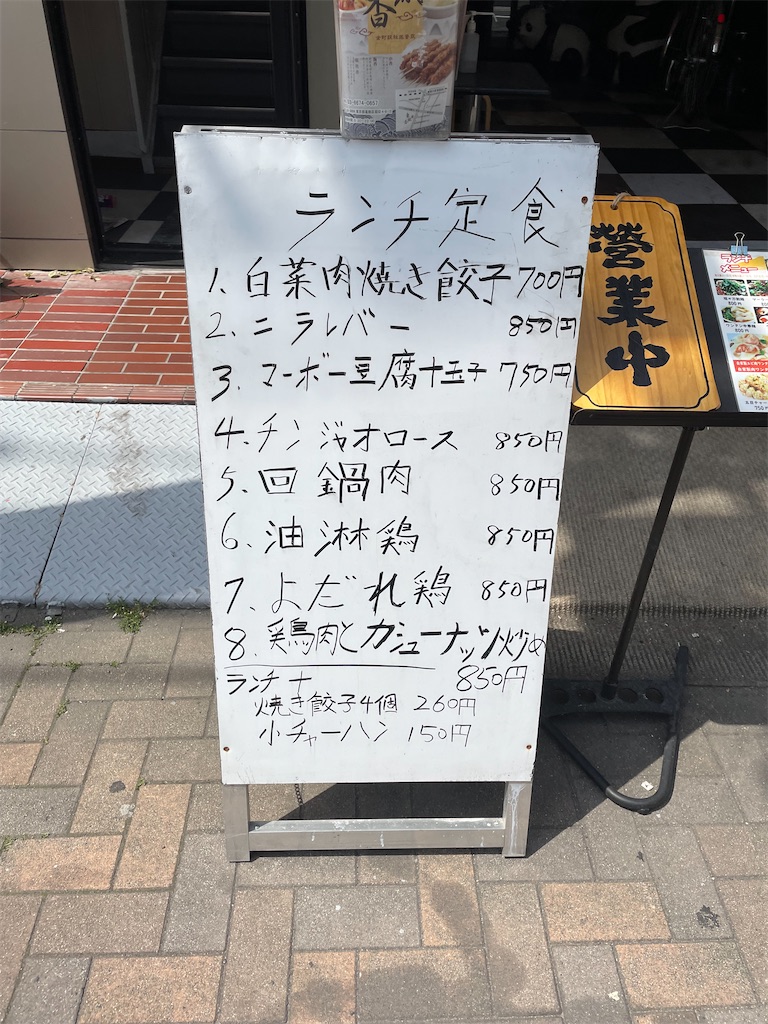 ランチ定食
1、白菜肉焼き餃子 700円
2、ニラレバー 850円
3、マーボー豆腐+玉子 750円
4、チンジャオロース 850円
5、回鍋肉 850円
6、油淋鶏 850円
7、よだれ鶏 850円
8、鶏肉とカシューナッツ炒め
850円
ランチ+
焼き餃子4個 260円
小チャーハン 150円
營業中
ランチ
メニュー